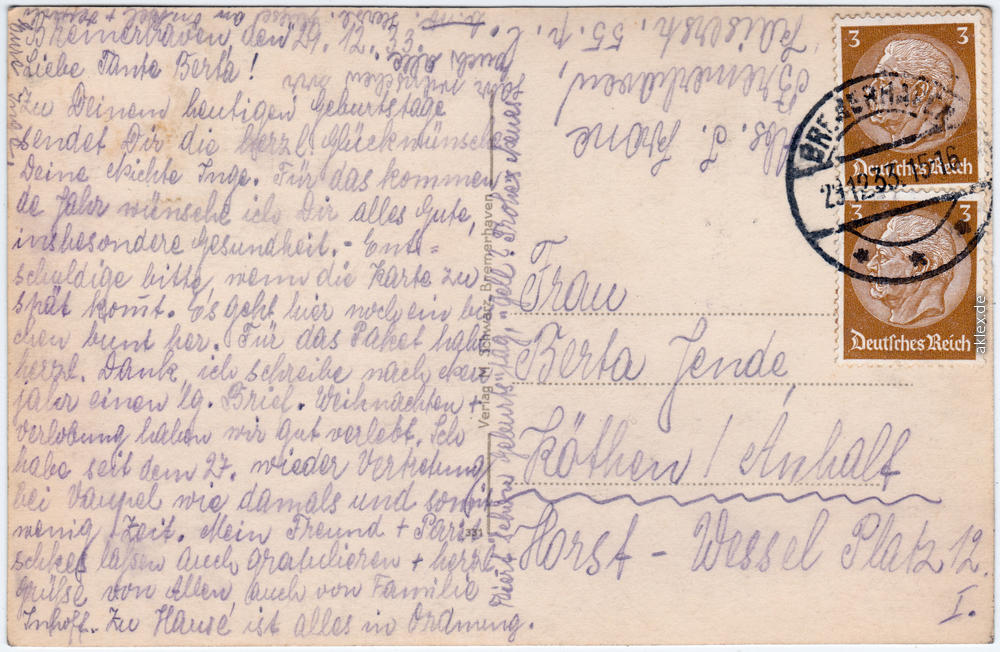 Bremerhaven den 29.12.33.
Liebe Tante Berta!
Zu Deinem heutigen Geburtstage
sendet Dir die herzl. Glückwünsche
Deine Nichte Inge. Für das kommen-
de Jahr wünsche ich Dir alles Gute,
insbesondere Gesundheit. - Ent-
schuldige bitte, wenn die Karte zu
spät komt. Es geht hier noch ein bis-
chen bunt her. Für das Paket habe
herzl. Dank, ich schreibe nach Neu
jahr einen lg. Brief. Weihnachten +
Verlobung haben wir gut verlebt. Ich
habe seit dem 27. wieder Vertretung
bei Vaupel wie damals und somit
wenig Zeit. Mein Freund +
laßen auch gratulieren + herzl.
grüßen von Allen, auch von Familie
Imhoff. Zu Hause ist alles in Ordnung.
Feiert schön Geburtstag, gell? Frohes neues
Abs. I. Krone
Bremerhaven,
Kaiserstr. 55. p. l.
Verlag M. Schwarz, Bremerhaven
331
Frau
Berta Jende,
Köthen / Anhalt
Horst - Wessel Platz 12.
I.
3 3
Deutsches Reich
3 3
Deutsches Reich
BREMERHAVEN
29.12.33.15-16
aklex.de